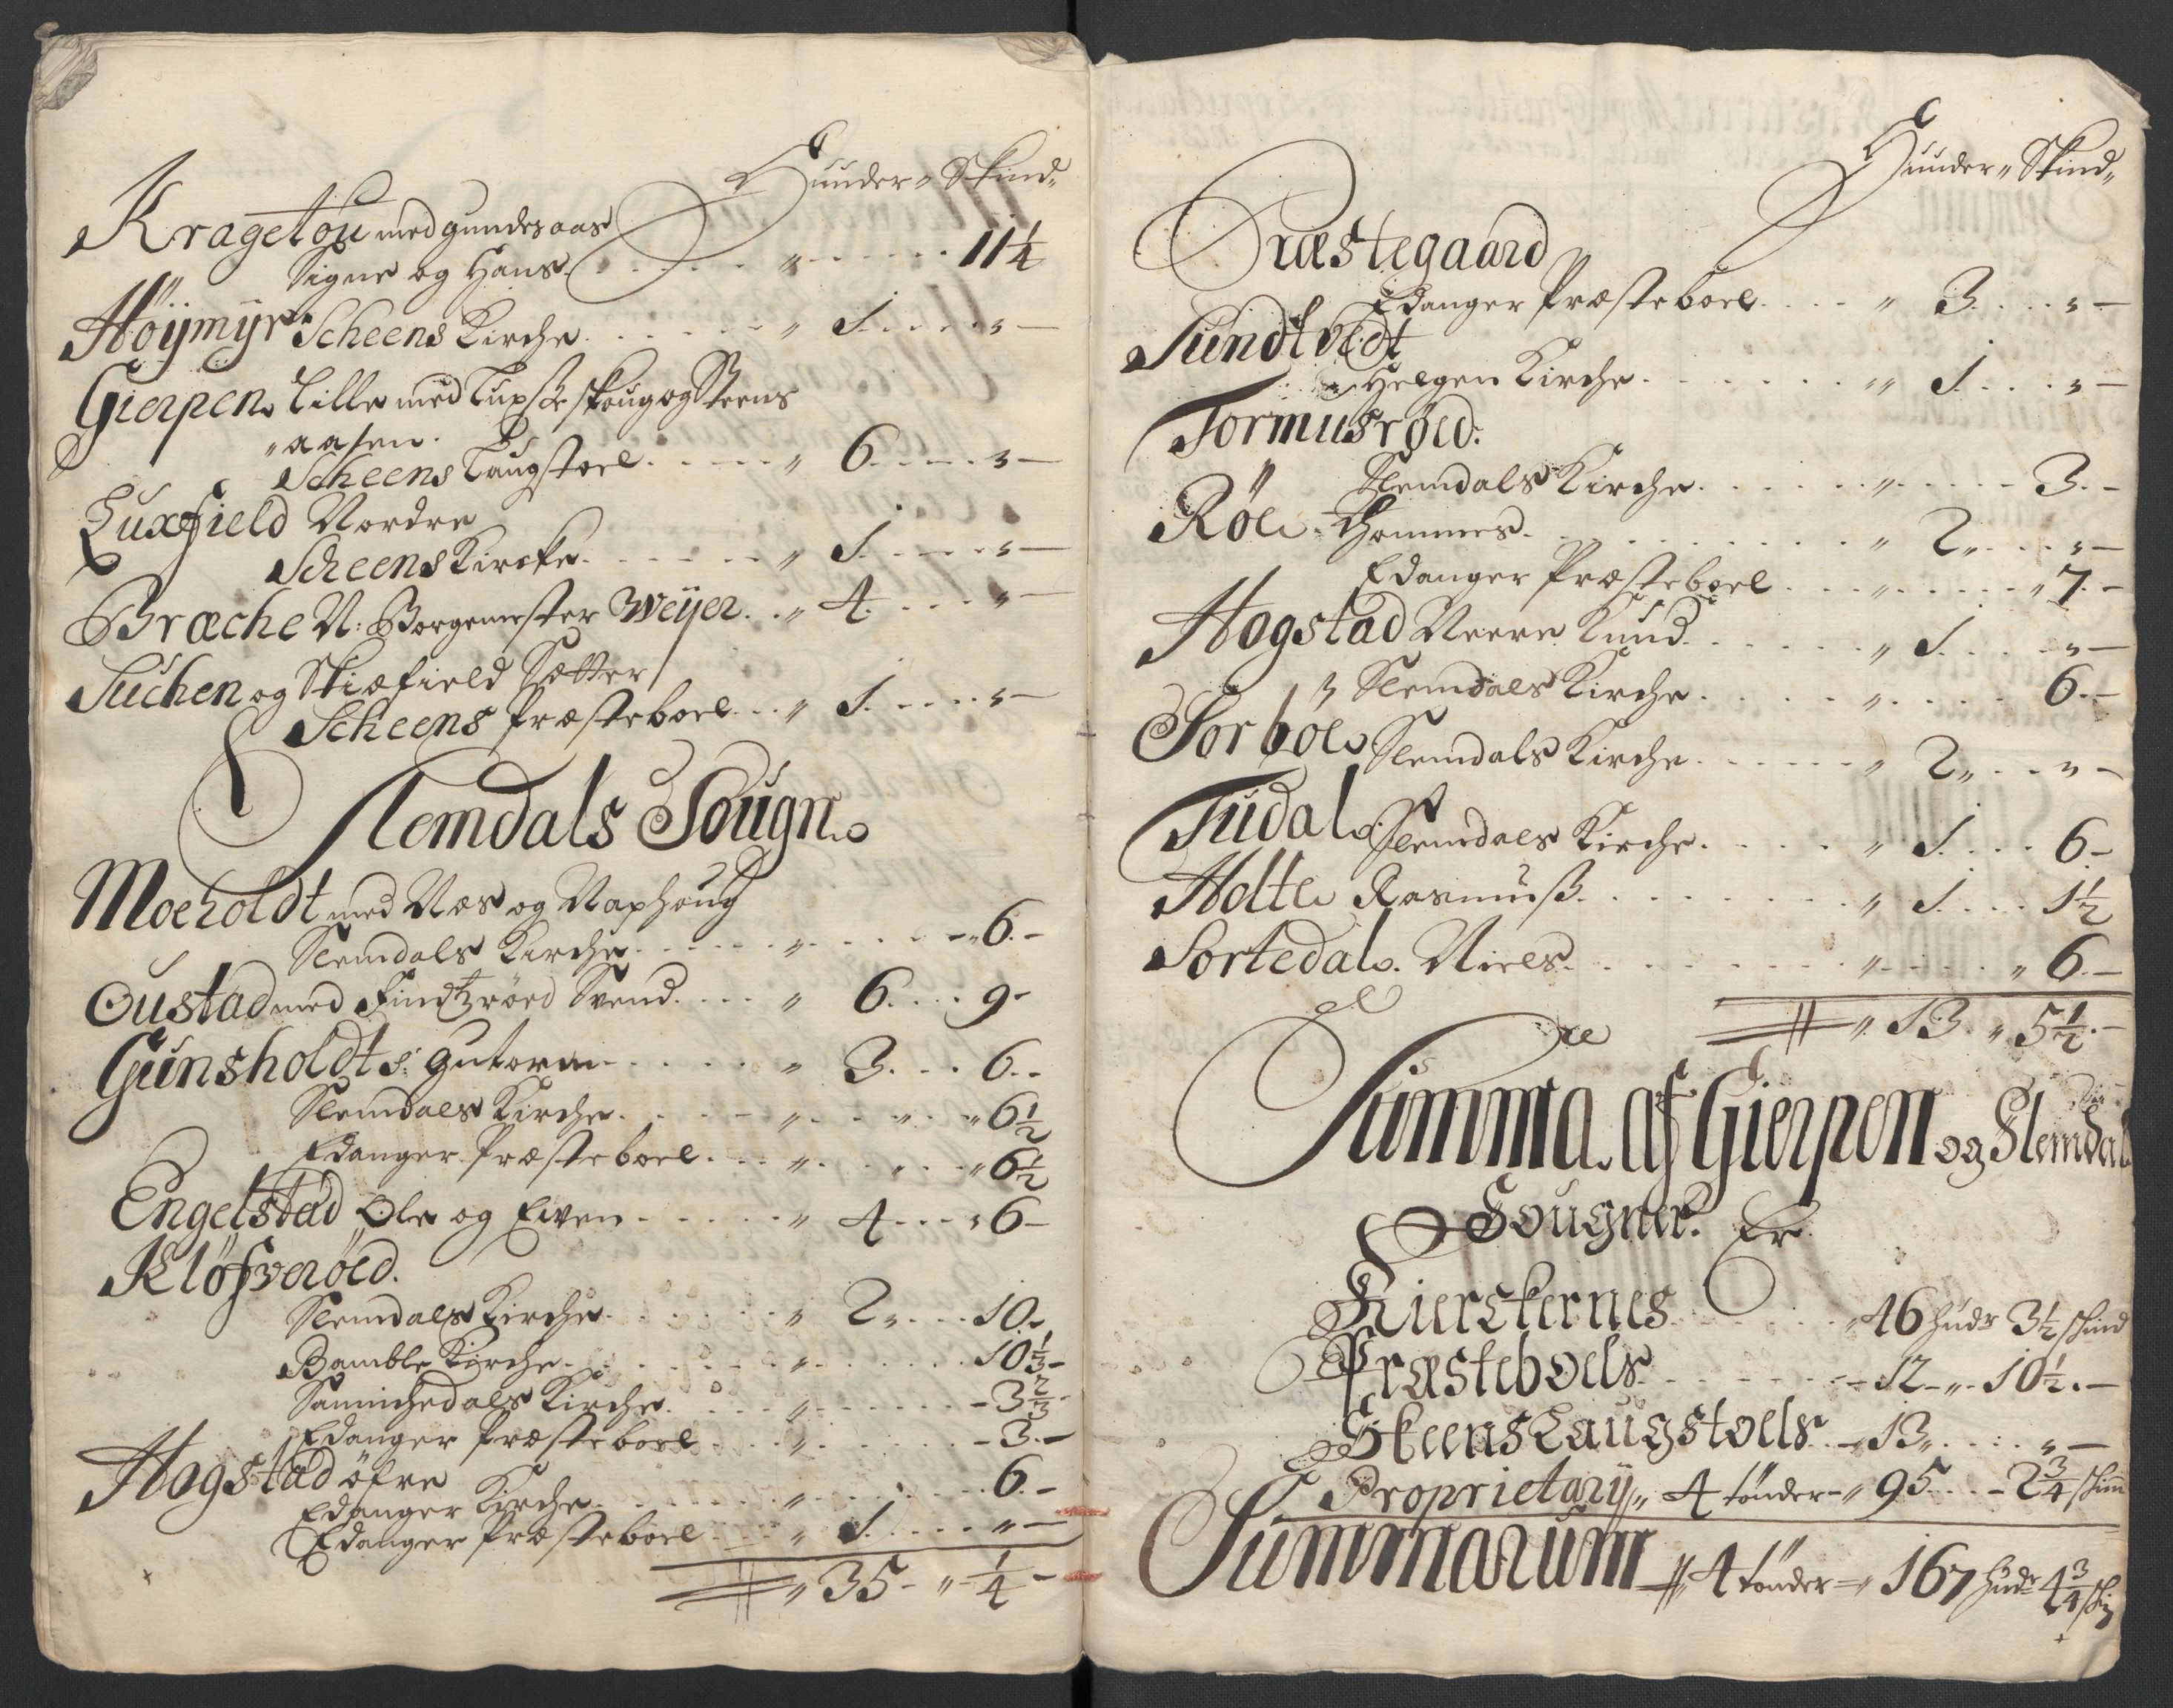 Huuder „ Skind„
Kragetøu med gundesaas
Signe og Hans . . . . „ . . . . 11 1/4
Höÿmÿr Scheens Kirche . . . . „ 1 . . . „ —
Gierpen Lille med Lupße skoug og Steens
„aasen.
Scheens Laugstoel . . . . „ 6 . . . „ —
Luxfield Nordre
Scheens Kircke . . . . „ 1 . . . „ —
Bræche N: Borgemester Weÿer . . „ 4 . . . „ —
Suchen og Skiæfield Sætter
Scheens Præsteboel . . „ 1 . . . „ —
Slemdals Sougn
Moeholdt med Næs og Naphoug
Slemdals Kirche . . . . „ . . . . „ 6. –
Oustad med Findtzröed Svend . . . „ 6 . . . 9 –
Gunsholdt S: Gutorm . . . . „ 3 . . . 6 . –
Slemdals Kirche . . . . „ . . „ . . „ 6 1/2
Edanger Præsteboel . . . „ . . „ . . „ 6 1/2
Engelstad Ole og Even . . . . „ 4 . . . „ 6 –
Kløfverøed.
Slemdals Kirche . . . . „ 2 „ . . . 10. –
Bamble Kirche . . . . „ . . . . 10 1/3 –
Sannichedals Kirche . . . . „ . . . . – 3 2/3 –
Edanger Præsteboel . . . „ . . . . – 3. –
Hogstad öfre
Edanger Kirche . . . . „ . . . . 6. –
Edanger Præsteboel . . . „ 1 . . . „ —
„ 35 – „ 1/4 –
Huuder „ Skind„
Præstegaard
Edanger Præsteboel . . . „ 3 . . . „ —
Sundtvedt
Helgen Kirche . . . . „ 1 . . . „ —
Tormusrøed:
Slemdals Kirche . . . . „ . . . . 3. –
Röe Thommes . . . . „ 2 „ . . . „ —
Edanger Præsteboel . . . „ . . . . „ 7. –
Hogstad Neere Knud . . . . „ 1 . . . „ —
Slemdals Kirche . . . . „ . . . . 6. –
Sorböe Slemdals Kirche . . . . „ 2 „ . . „ –
Tudal Slemdals Kirche . . . . „ 1 . . . 6. –
Holte Rasmuß . . . . „ 1 . . . 1 1/2
Sortedal Niels . . . . „ . . . „ 6 . —
„ 13 . „ 5 1/2 . –
Summa af Gierpen og Slemdal
Sougner. Er
Kierckernes . . . . „ 46 hudr 3 1/2 skind
Præsteboels . . . . – 12 – „ – 10 1/2 . –
Skeens Laugstoels . . – 13 „ . . . . „ —
Proprietarÿ „ 4 tönder – „ 95 . . . – 2 3/4 skin
Summarum „ 4 tönder – „ 167 hudr 4 3/4 skin